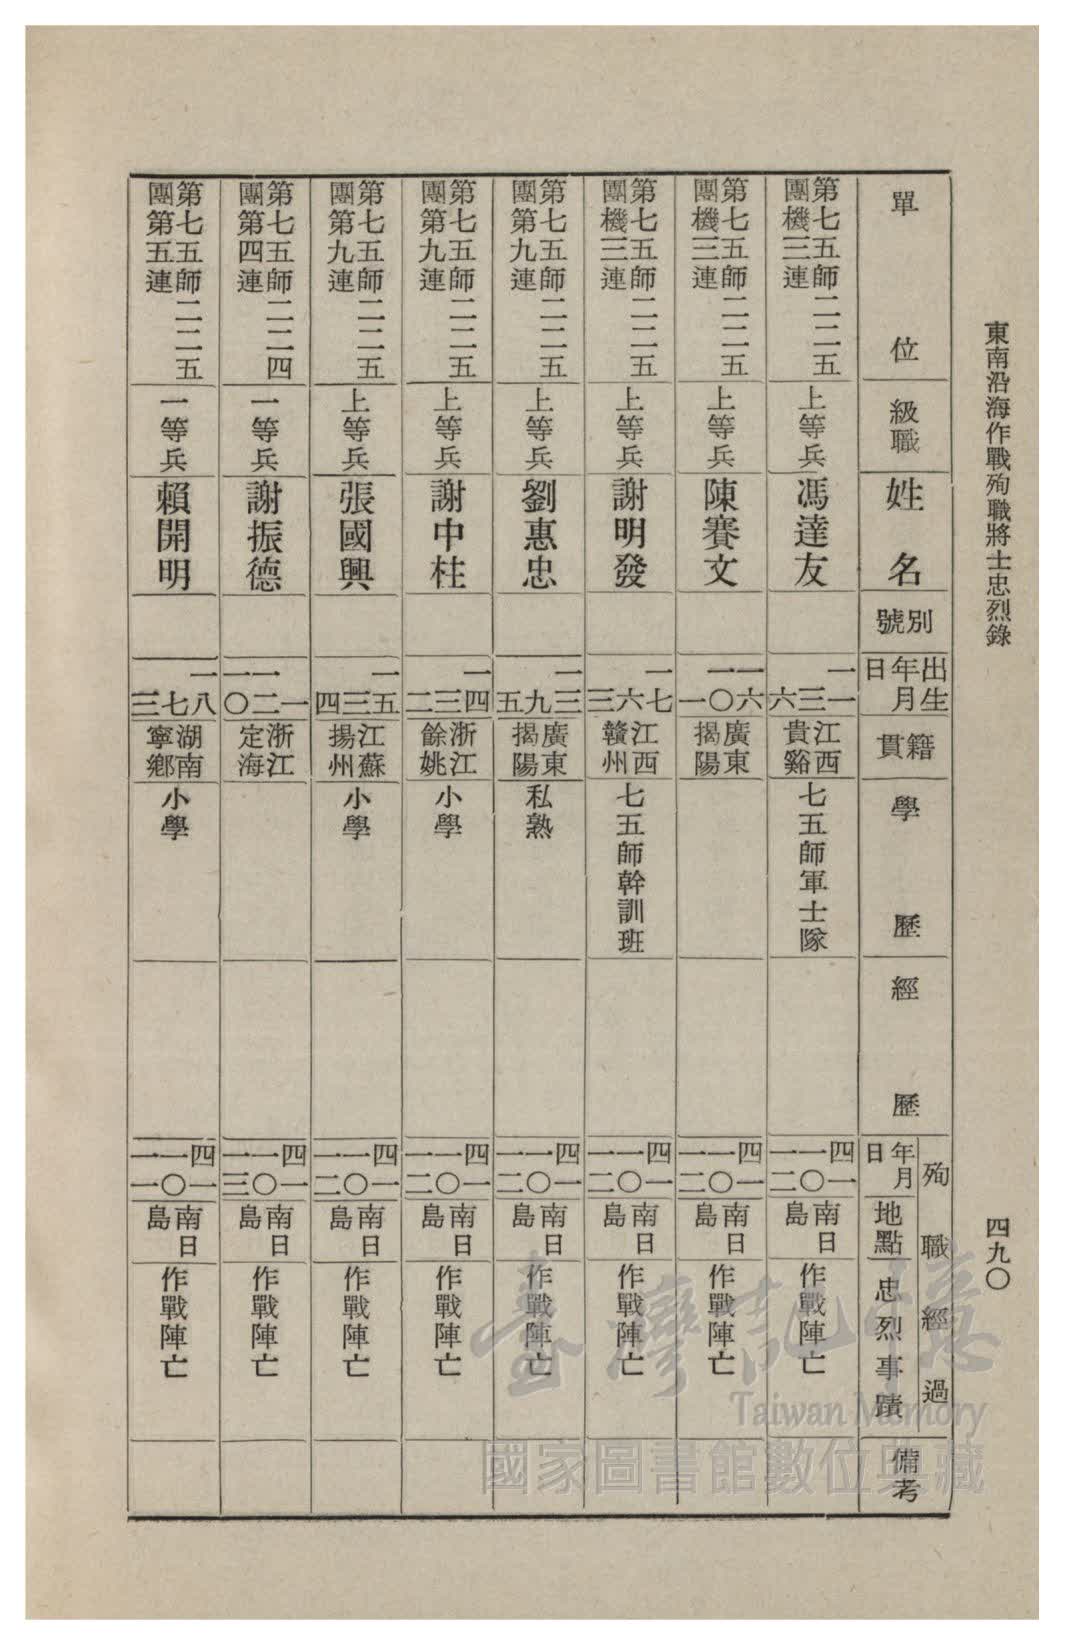 東南沿海作戰殉職將士忠烈錄
四九〇
單位
級職
姓名
別號
出生
年月
日
籍貫
學歷
經歷
殉職經過
年月
日
地點
忠烈事蹟
備考
第七五師二二五
團機三連
上等兵
馮達友
一一
三
六
江西
貴谿
七五師軍士隊
四一
一〇
一二
南日
島
作戰陣亡
第七五師二二五
團機三連
上等兵
陳賽文
六
一〇
一一
廣東
揭陽
四一
一〇
一二
南日
島
作戰陣亡
第七五師二二五
團機三連
上等兵
謝明發
一七
六
三
江西
贛州
七五師幹訓班
四一
一〇
一二
南日
島
作戰陣亡
第七五師二二五
團第九連
上等兵
劉惠忠
一三
九
五
廣東
揭陽
私熟
四一
一〇
一二
南日
島
作戰陣亡
第七五師二二五
團第九連
上等兵
謝中柱
一四
三
二
浙江
餘姚
小學
四一
一〇
一二
南日
島
作戰陣亡
第七五師二二五
團第九連
上等兵
張國興
一五
三
四
江蘇
揚州
小學
四一
一〇
一二
南日
島
作戰陣亡
第七五師二二四
團第四連
一等兵
謝振德
一
一二
一〇
浙江
定海
四一
一〇
一三
南日
島
作戰陣亡
第七五師二二五
團第五連
一等兵
賴開明
一八
七
三
湖南
寧鄉
小學
四一
一〇
一一
南日
島
作戰陣亡
臺灣記憶
Taiwan Memory
國家圖書館數位典藏